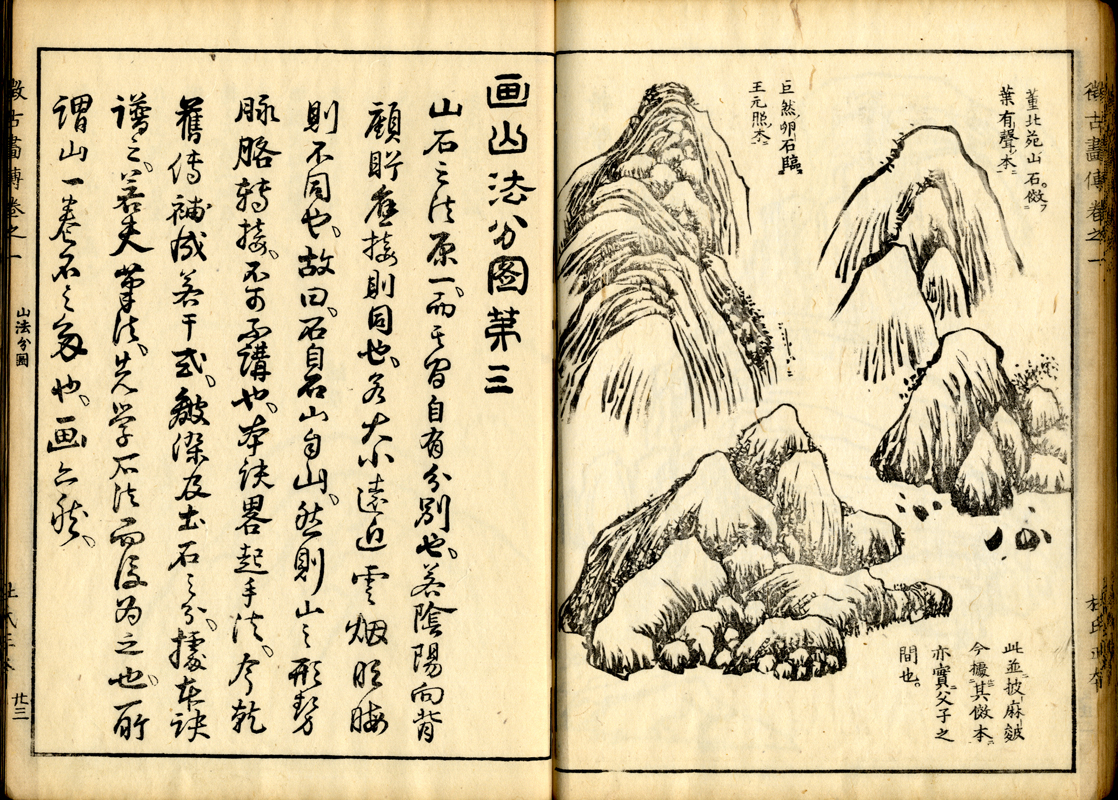 徴古畫傳卷之一
董北苑山石。倣
葉有聲本
巨然卵石臨
王元照本
此並披麻皴
今據其倣本
亦實父子之
間也。
画山法分圖第三
山石之法原一。而其習自有分別也。若陰陽向背
顧盼應接則同也。若大小遠近雲烟明晦
則不同也。故曰。石自石山自山。然則山之形勢
脉胳转接。不可不講也。本訣畧起手法。今乾
舊傳補成若干式。皴染及土石之分。據本訣
譜之。若夫筆法。先学石法而後為之也。所
謂山一卷石之多也。画亦然。
徴古畫傳卷之一
山法分圖
廿三